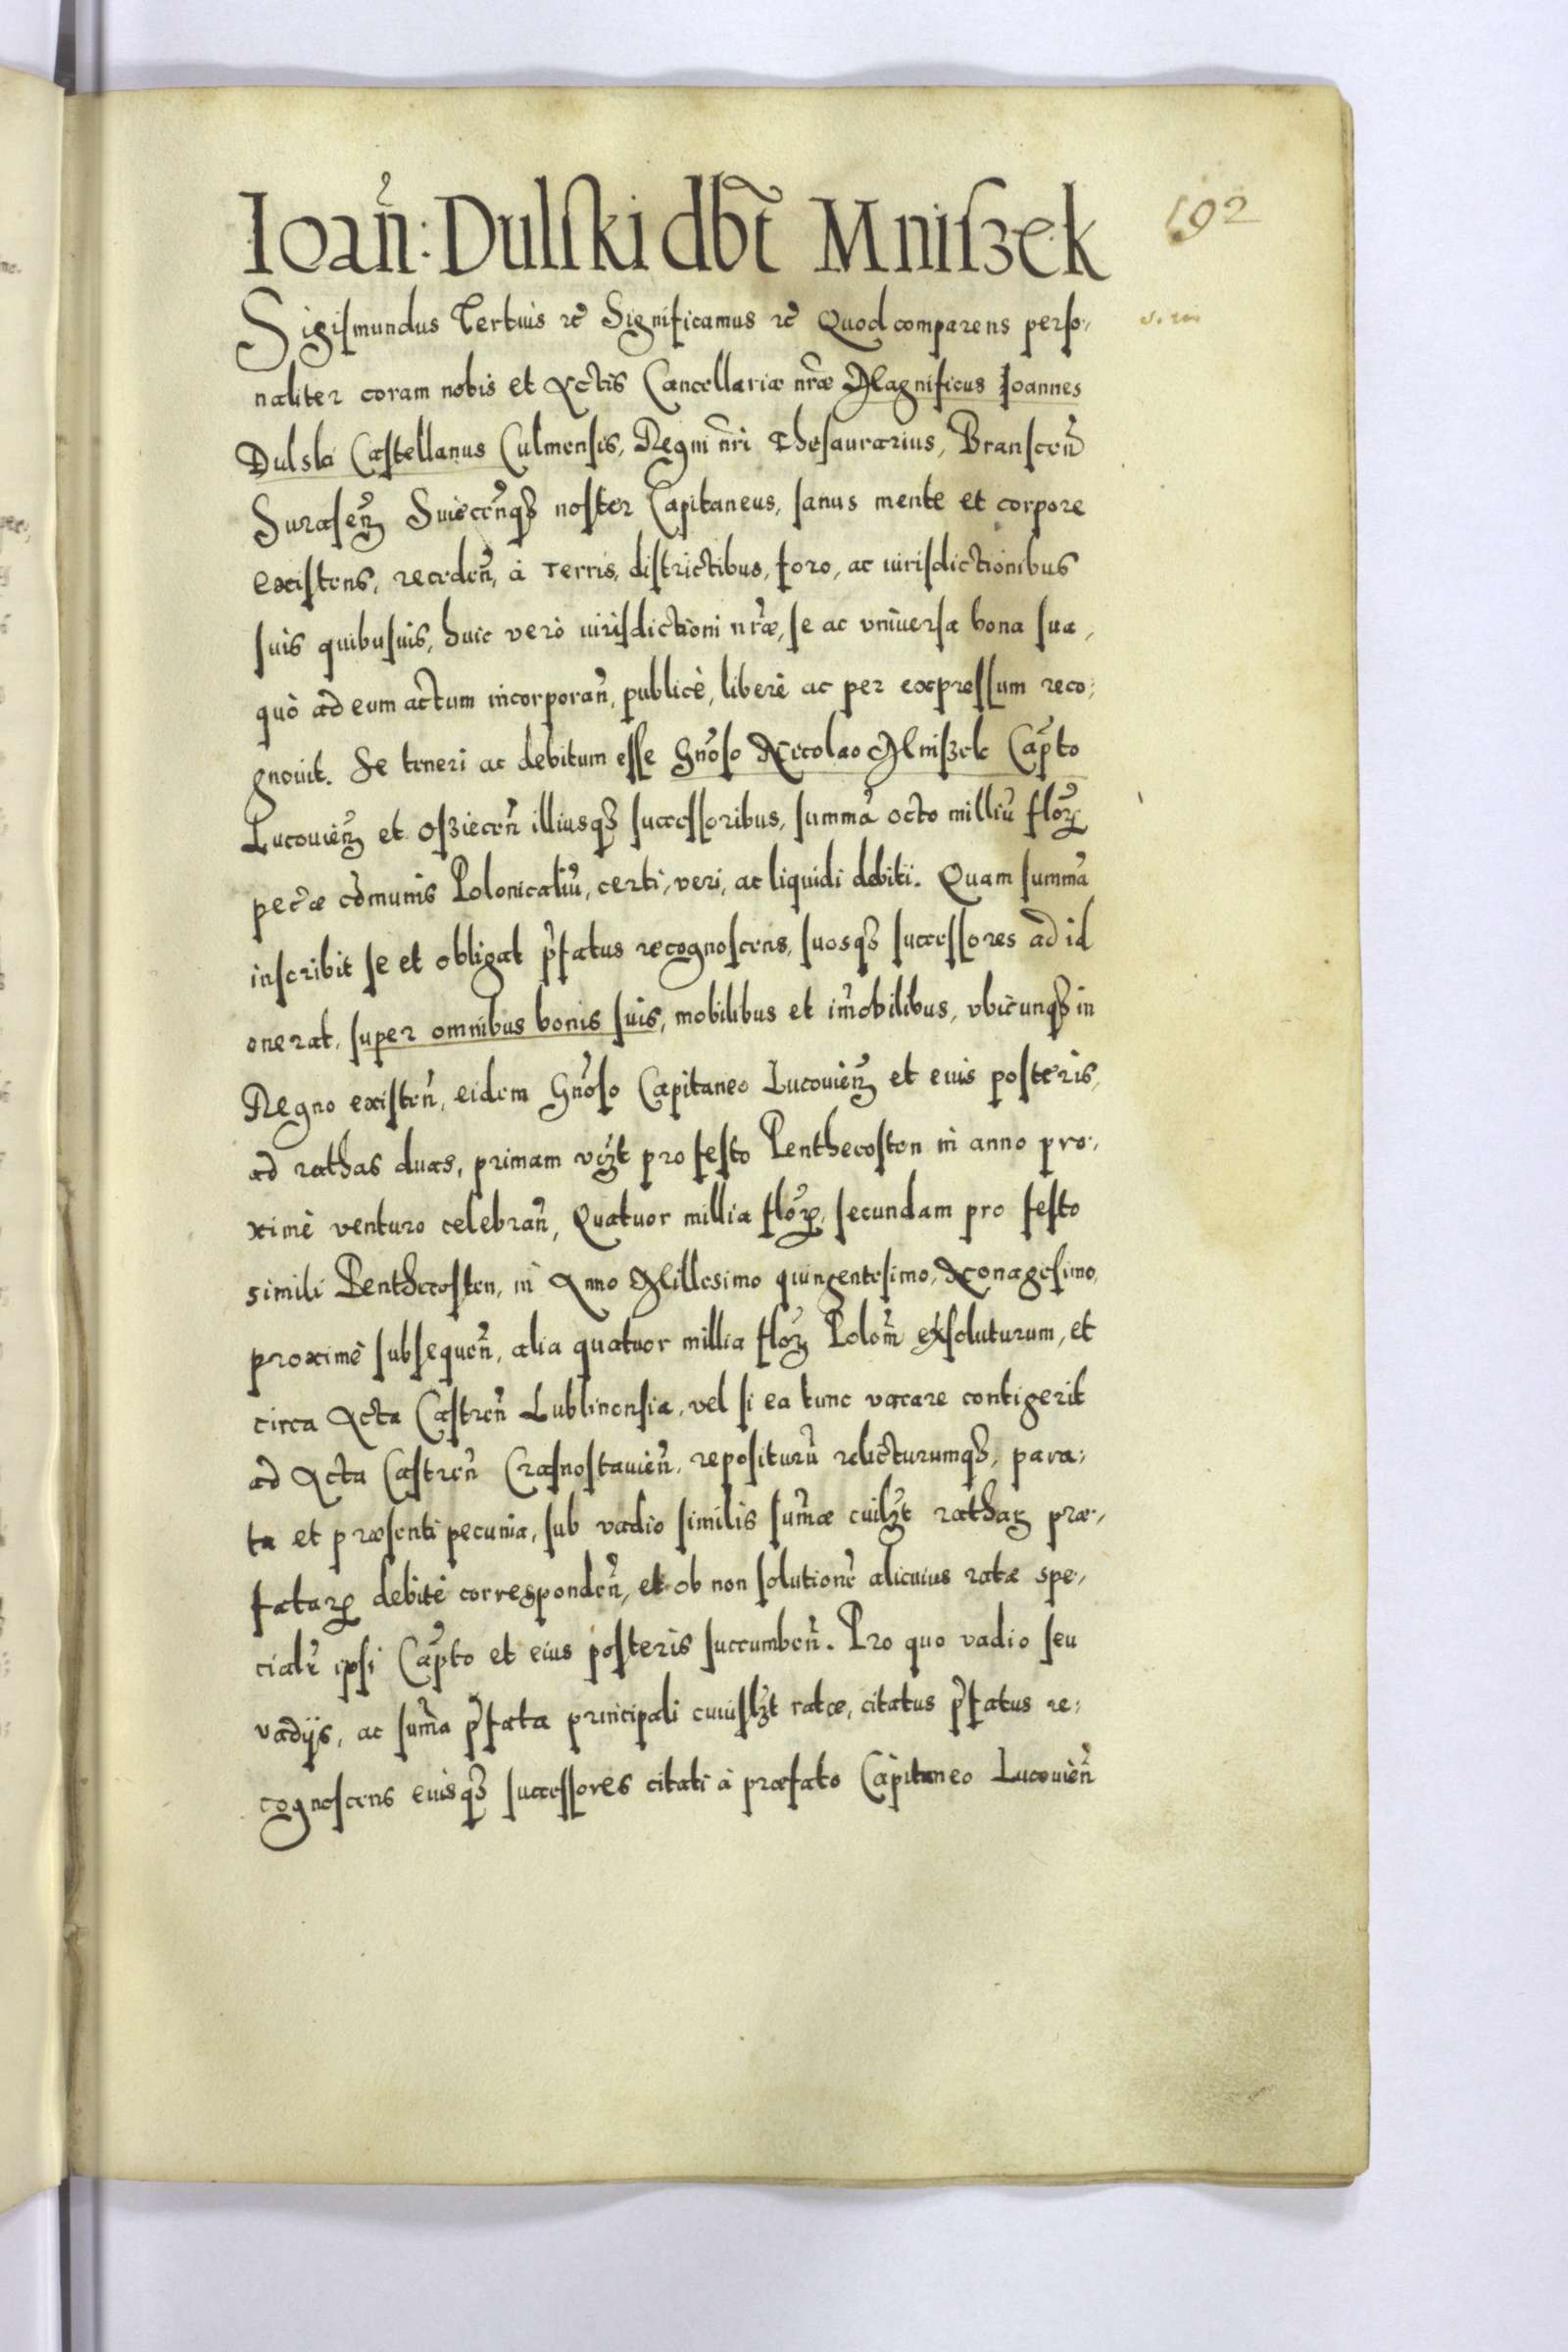 Ioan̄: Dulſki dbt̄ Mniſzek
192
Sigiſmundus Tertius ꝛc̄ Significamus ꝛc̄ Quod comparens perſo,
naliter coram nobis et Actis Cancellariæ nr̄æ Magnificus Ioannes
Dulski Caſtellanus Culmenſis, Regni nr̄i Theſaurarius, Branſcen̄
Suraſen̄ Suiecen̄qȝ noſter Capitaneus, ſanus mente et corpore
exiſtens, receden̄, à Terris, diſtrictibus, foro, ac iuriſdictionibus
ſuis quibuſuis, huic verò iuriſdictioni nr̄æ, ſe ac vniuerſa bona ſua,
quò ad eum actum incorporan̄, publicè, liberè ac per expreſſum reco,
gnouit. Se teneri ac debitum eſſe Gn̄oſo Nicolao Mniſzek Cap̄to
Lucouien̄ et Oſziecen̄ illiusqȝ ſucceſſoribus, ſummā octo milliū flōꝝ
pec̄æ cōmunis Polonicaliū, certi, veri, ac liquidi debiti. Quam ſummā
inſcribit ſe et obligat p̄fatus recognoſcens, ſuosqȝ ſucceſſores ad id
onerat, ſuper omnibus bonis ſuis, mobilibus et im̄obilibus, vbicunqȝ in
Regno exiſten̄, eidem Gn̄oſo Capitaneo Lucouien̄ et eius poſteris,
ad rathas duas, primam vꝫt pro feſto Penthecoſten in anno pro,
ximè venturo celebran̄, Quatuor millia flōꝝ, ſecundam pro feſto
simili Penthecoſten, in Anno Milleſimo quingentesimo, Nonageſimo,
proximè ſubſequen̄, alia quatuor millia flōꝝ Polon̄ exſoluturum, et
circa Acta Caſtren̄ Lublinenſia, vel ſi ea tunc vacare contigerit
ad Acta Caſtren̄ Craſnoſtauien̄, repoſiturū relicturumqȝ, para,
ta et præſenti pecunia, ſub vadio ſimilis ſum̄æ cuilꝫt rathaꝝ præ,
fataꝝ debitè corresponden̄, et ob non ſolutionē alicuius ratæ spe,
cialr̄ ipſi Cap̄to et eius poſteris ſuccumben̄. Pro quo vadio ſeu
vadijs, ac ſum̄a p̄fata principali cuiuſlꝫt ratæ, citatus p̄fatus re,
cognoſcens eiusqȝ ſucceſſores citati à præfato Capitaneo Lucouien̄